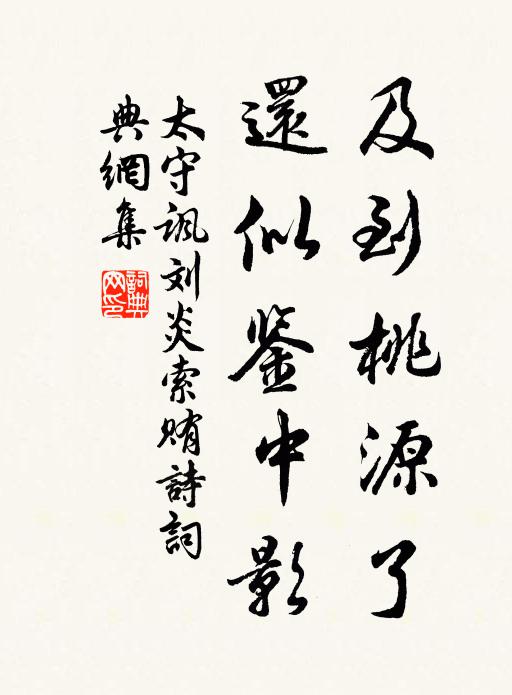 及到桃源了
還似鉴中影
太守諷刘炎索賄詩詞
典網集
詞典网印